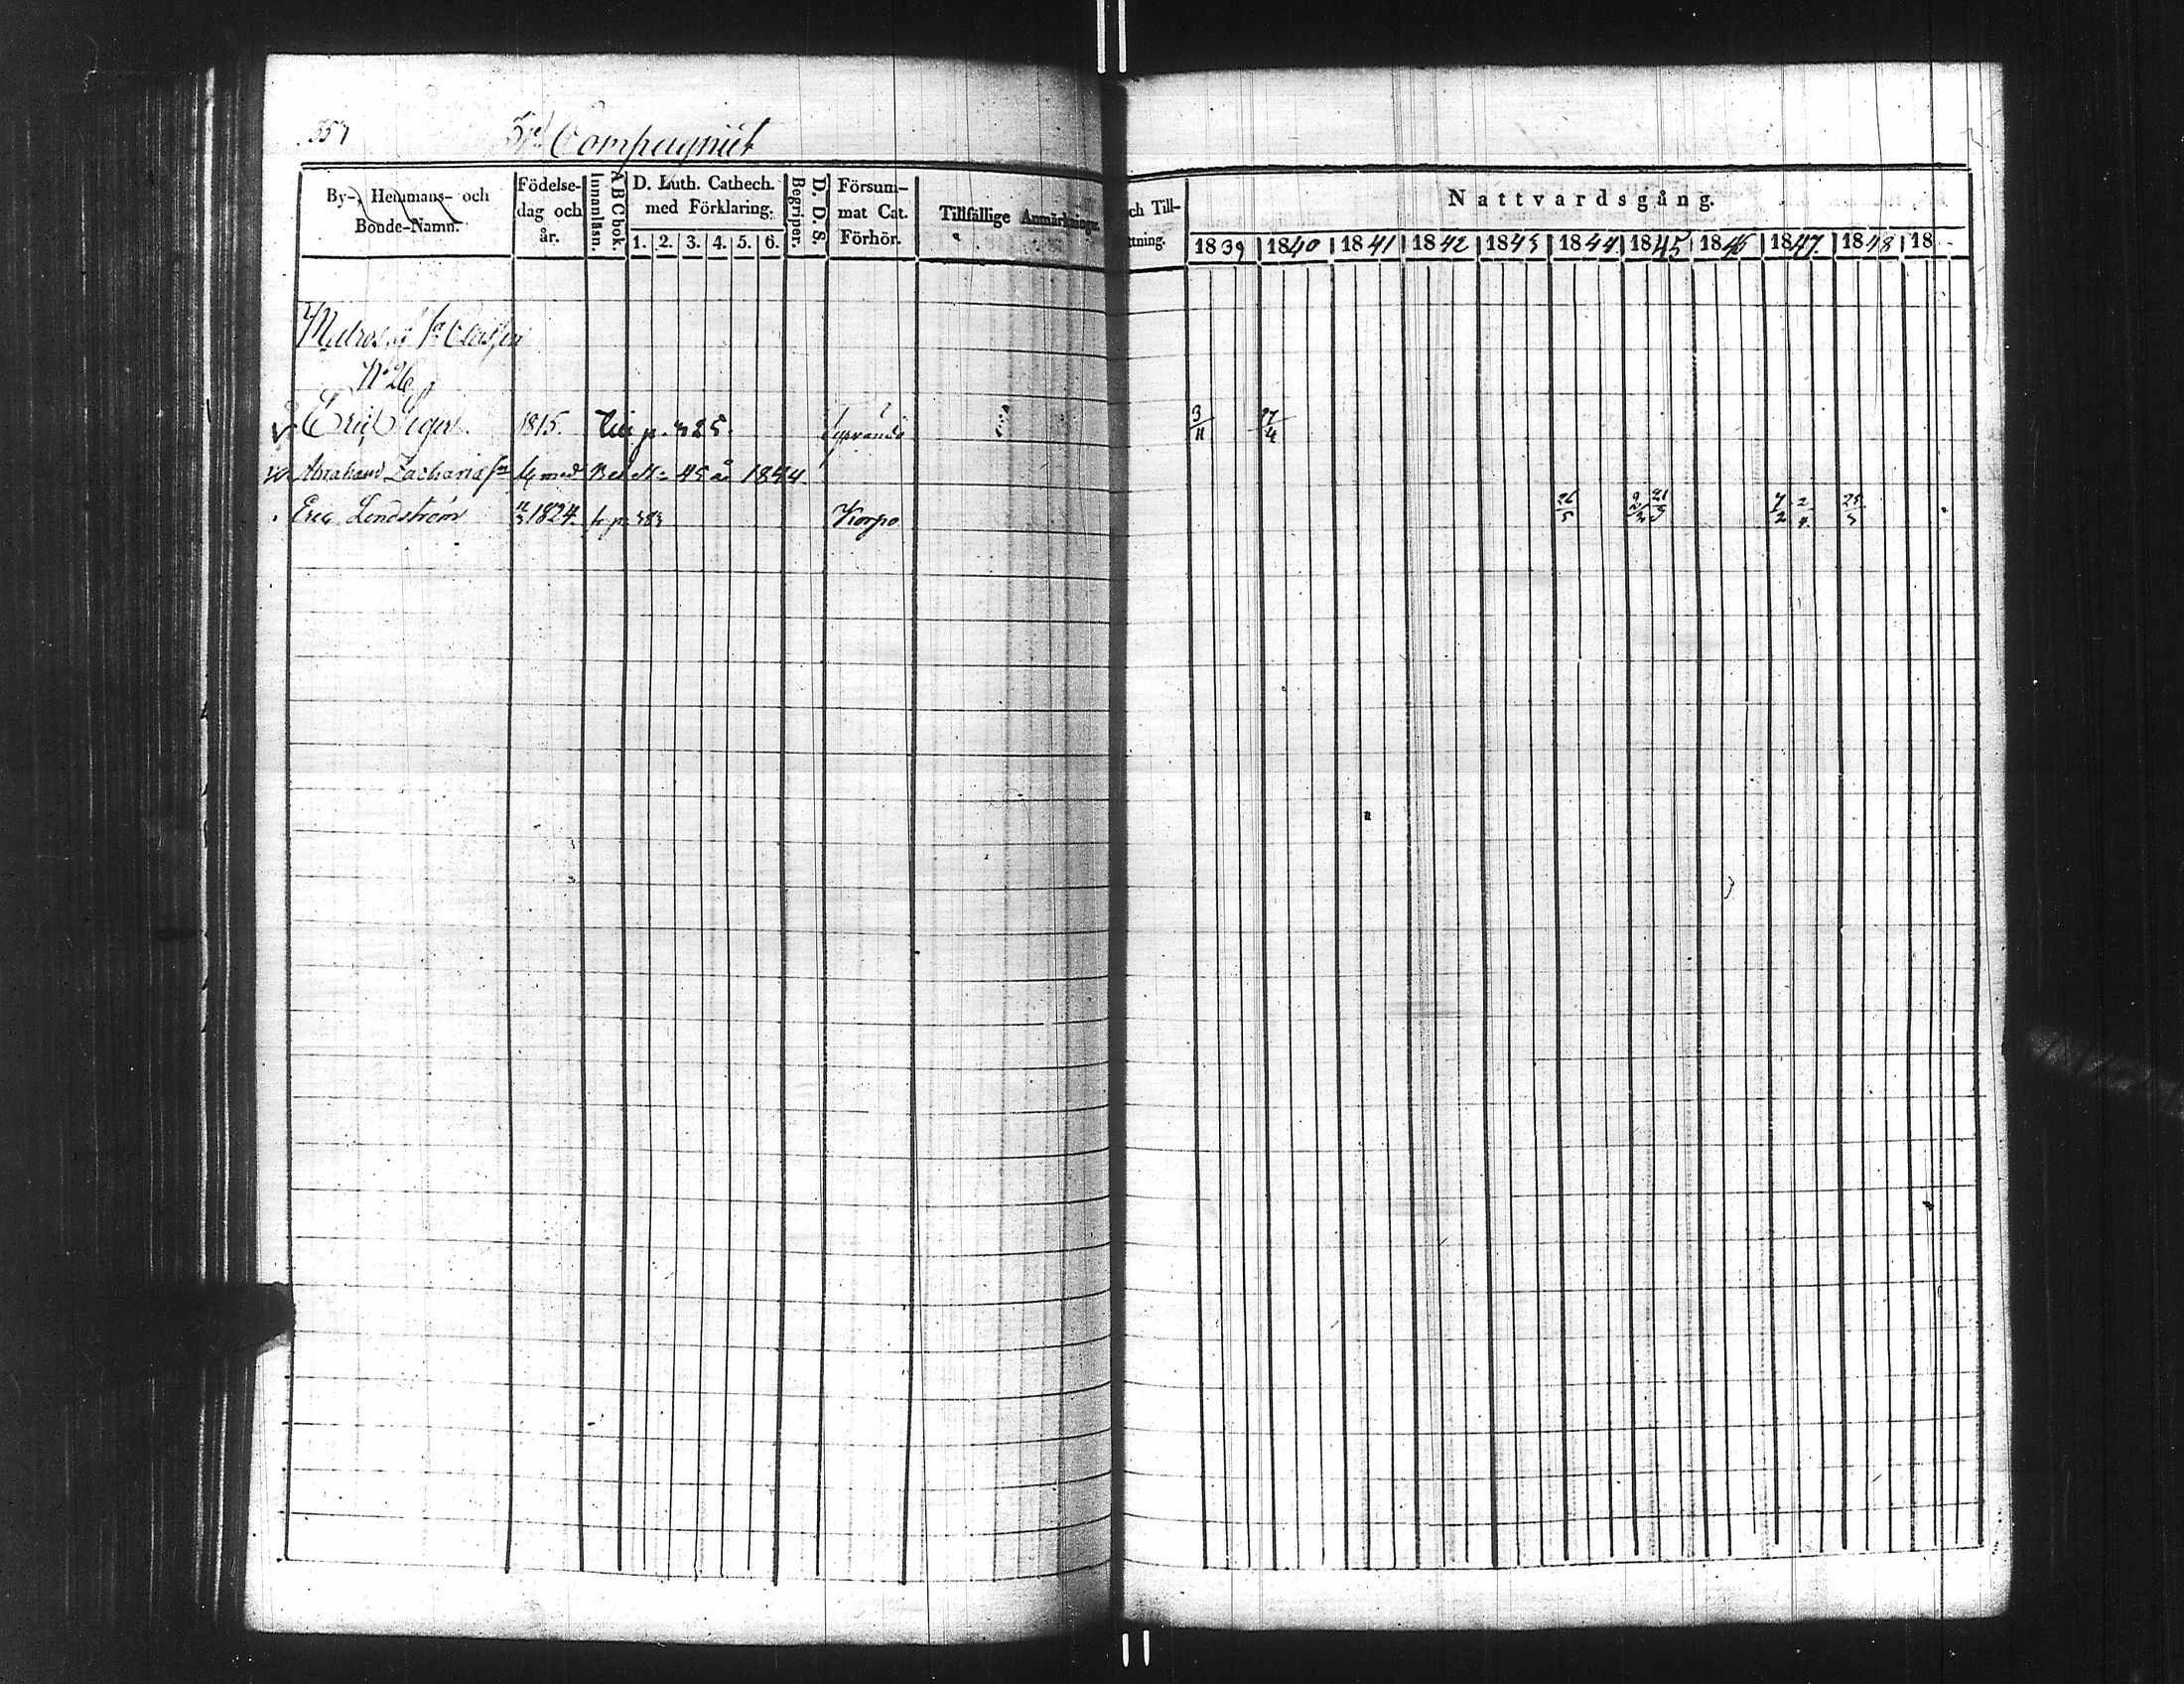 357 3je Compagniet
By-, Hemmans- och Bonde-Namn.
Födelse-dag och år.
Innanläsn.
A B C bok.
D. Luth. Cathech. med Förklaring.
1. 2. 3. 4. 5. 6.
Begriper.
D. D. S.
Försum-mat Cat. Förhör.
Tillfällige Anmärkninga
ch Till-
ttning.
Nattvardsgång.
1839 1840 1841 1842 1843 1844 1845 1846 1847 1848 18
Matros
No 26
Eric Seger 1815. Vid p. 325. 3/11 17/4
Abraham Zacharias 45 år 1844
Eric Lindström 12/3 1824. fr p 383 Korpo 26/5 9/2 21/9 7/2 2/4 25/5